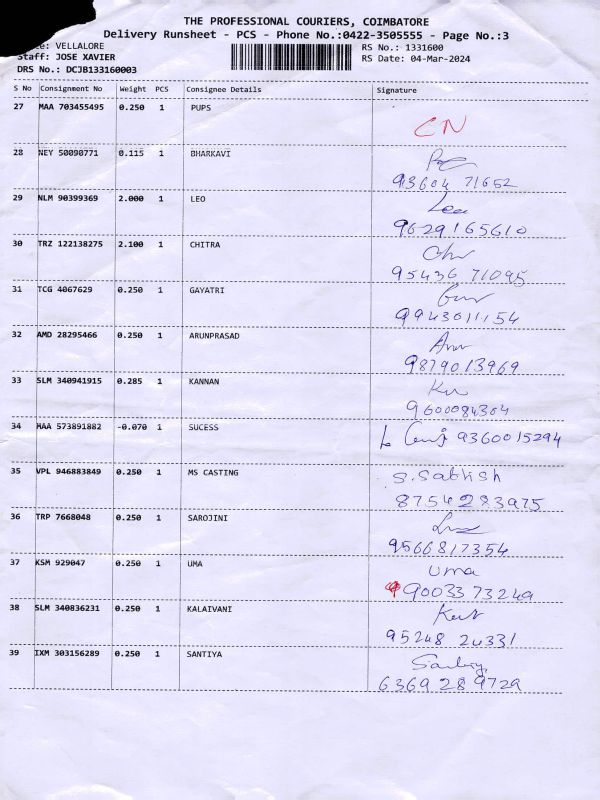 THE PROFESSIONAL COURIERS, COIMBATORE
Delivery Runsheet - PCS - Phone No.:0422-3505555 - Page No.:3
VELLALORE
RS No.: 1331600
Staff: JOSE XAVIER
RS Date: 04-Mar-2024
DRS No.: DCJB133160003
S No Consignment No Weight PCS Consignee Details Signature
27 MAA 703455495 0.250 1 PUPS
CN
28 NEY 50090771 0.115 1 BHARKAVI
93604 71652
29 NLM 90399369 2.000 1 LEO
Leo
9629165610
30 TRZ 122138275 2.100 1 CHITRA
95436 71095
31 TCG 4067629 0.250 1 GAYATRI
9943011154
32 AMD 28295466 0.250 1 ARUNPRASAD
9879013969
33 SLM 340941915 0.285 1 KANNAN
9600084304
34 MAA 573891882 -0.070 1 SUCESS
9360015294
35 VPL 946883849 0.250 1 MS CASTING
S. Sathish
8754283975
36 TRP 7668048 0.250 1 SAROJINI
9566817354
37 KSM 929047 0.250 1 UMA
Uma
90033 73249
38 SLM 340836231 0.250 1 KALAIVANI
95248 24331
39 IXM 303156289 0.250 1 SANTIYA
6369 289729